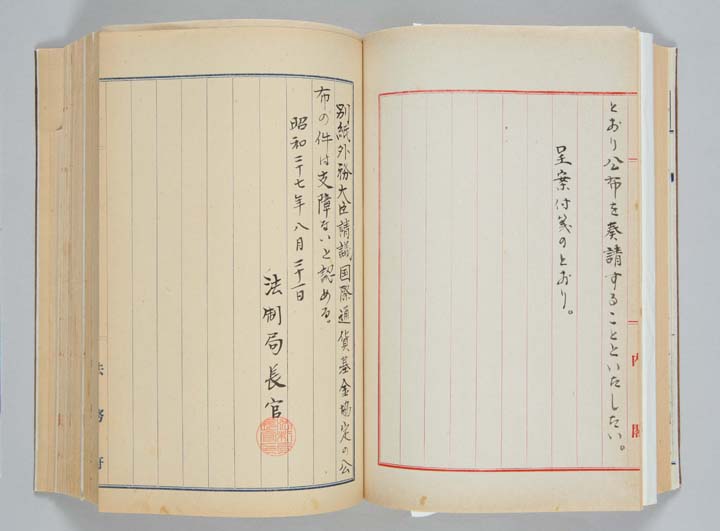 とおり公布を奏請することといたしたい。
呈案付箋のとおり。
内閣
別紙外務大臣請議国際通貨基金協定の公
布の件は支障ないと認める。
昭和二十七年八月二十一日
法制局長官
法務府